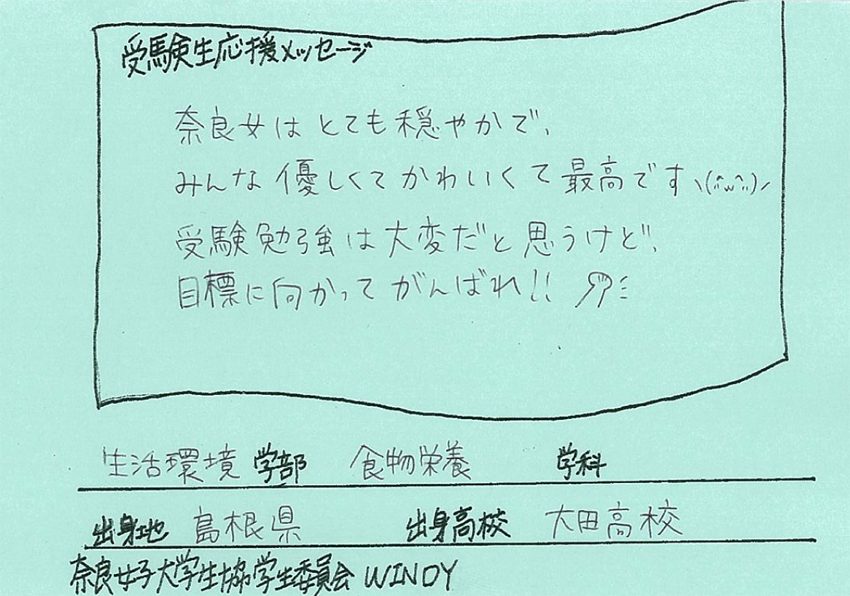 受験生応援メッセージ
奈良女はとても穏やかで、
みんな優しくてかわいくて最高ですヽ(^ω^)ノ
受験勉強は大変だと思うけど、
目標に向かってがんばれ!!
生活環境 学部 食物栄養 学科
出身地 島根県 出身高校 大田高校
奈良女子大学生協学生委員会 WINDY